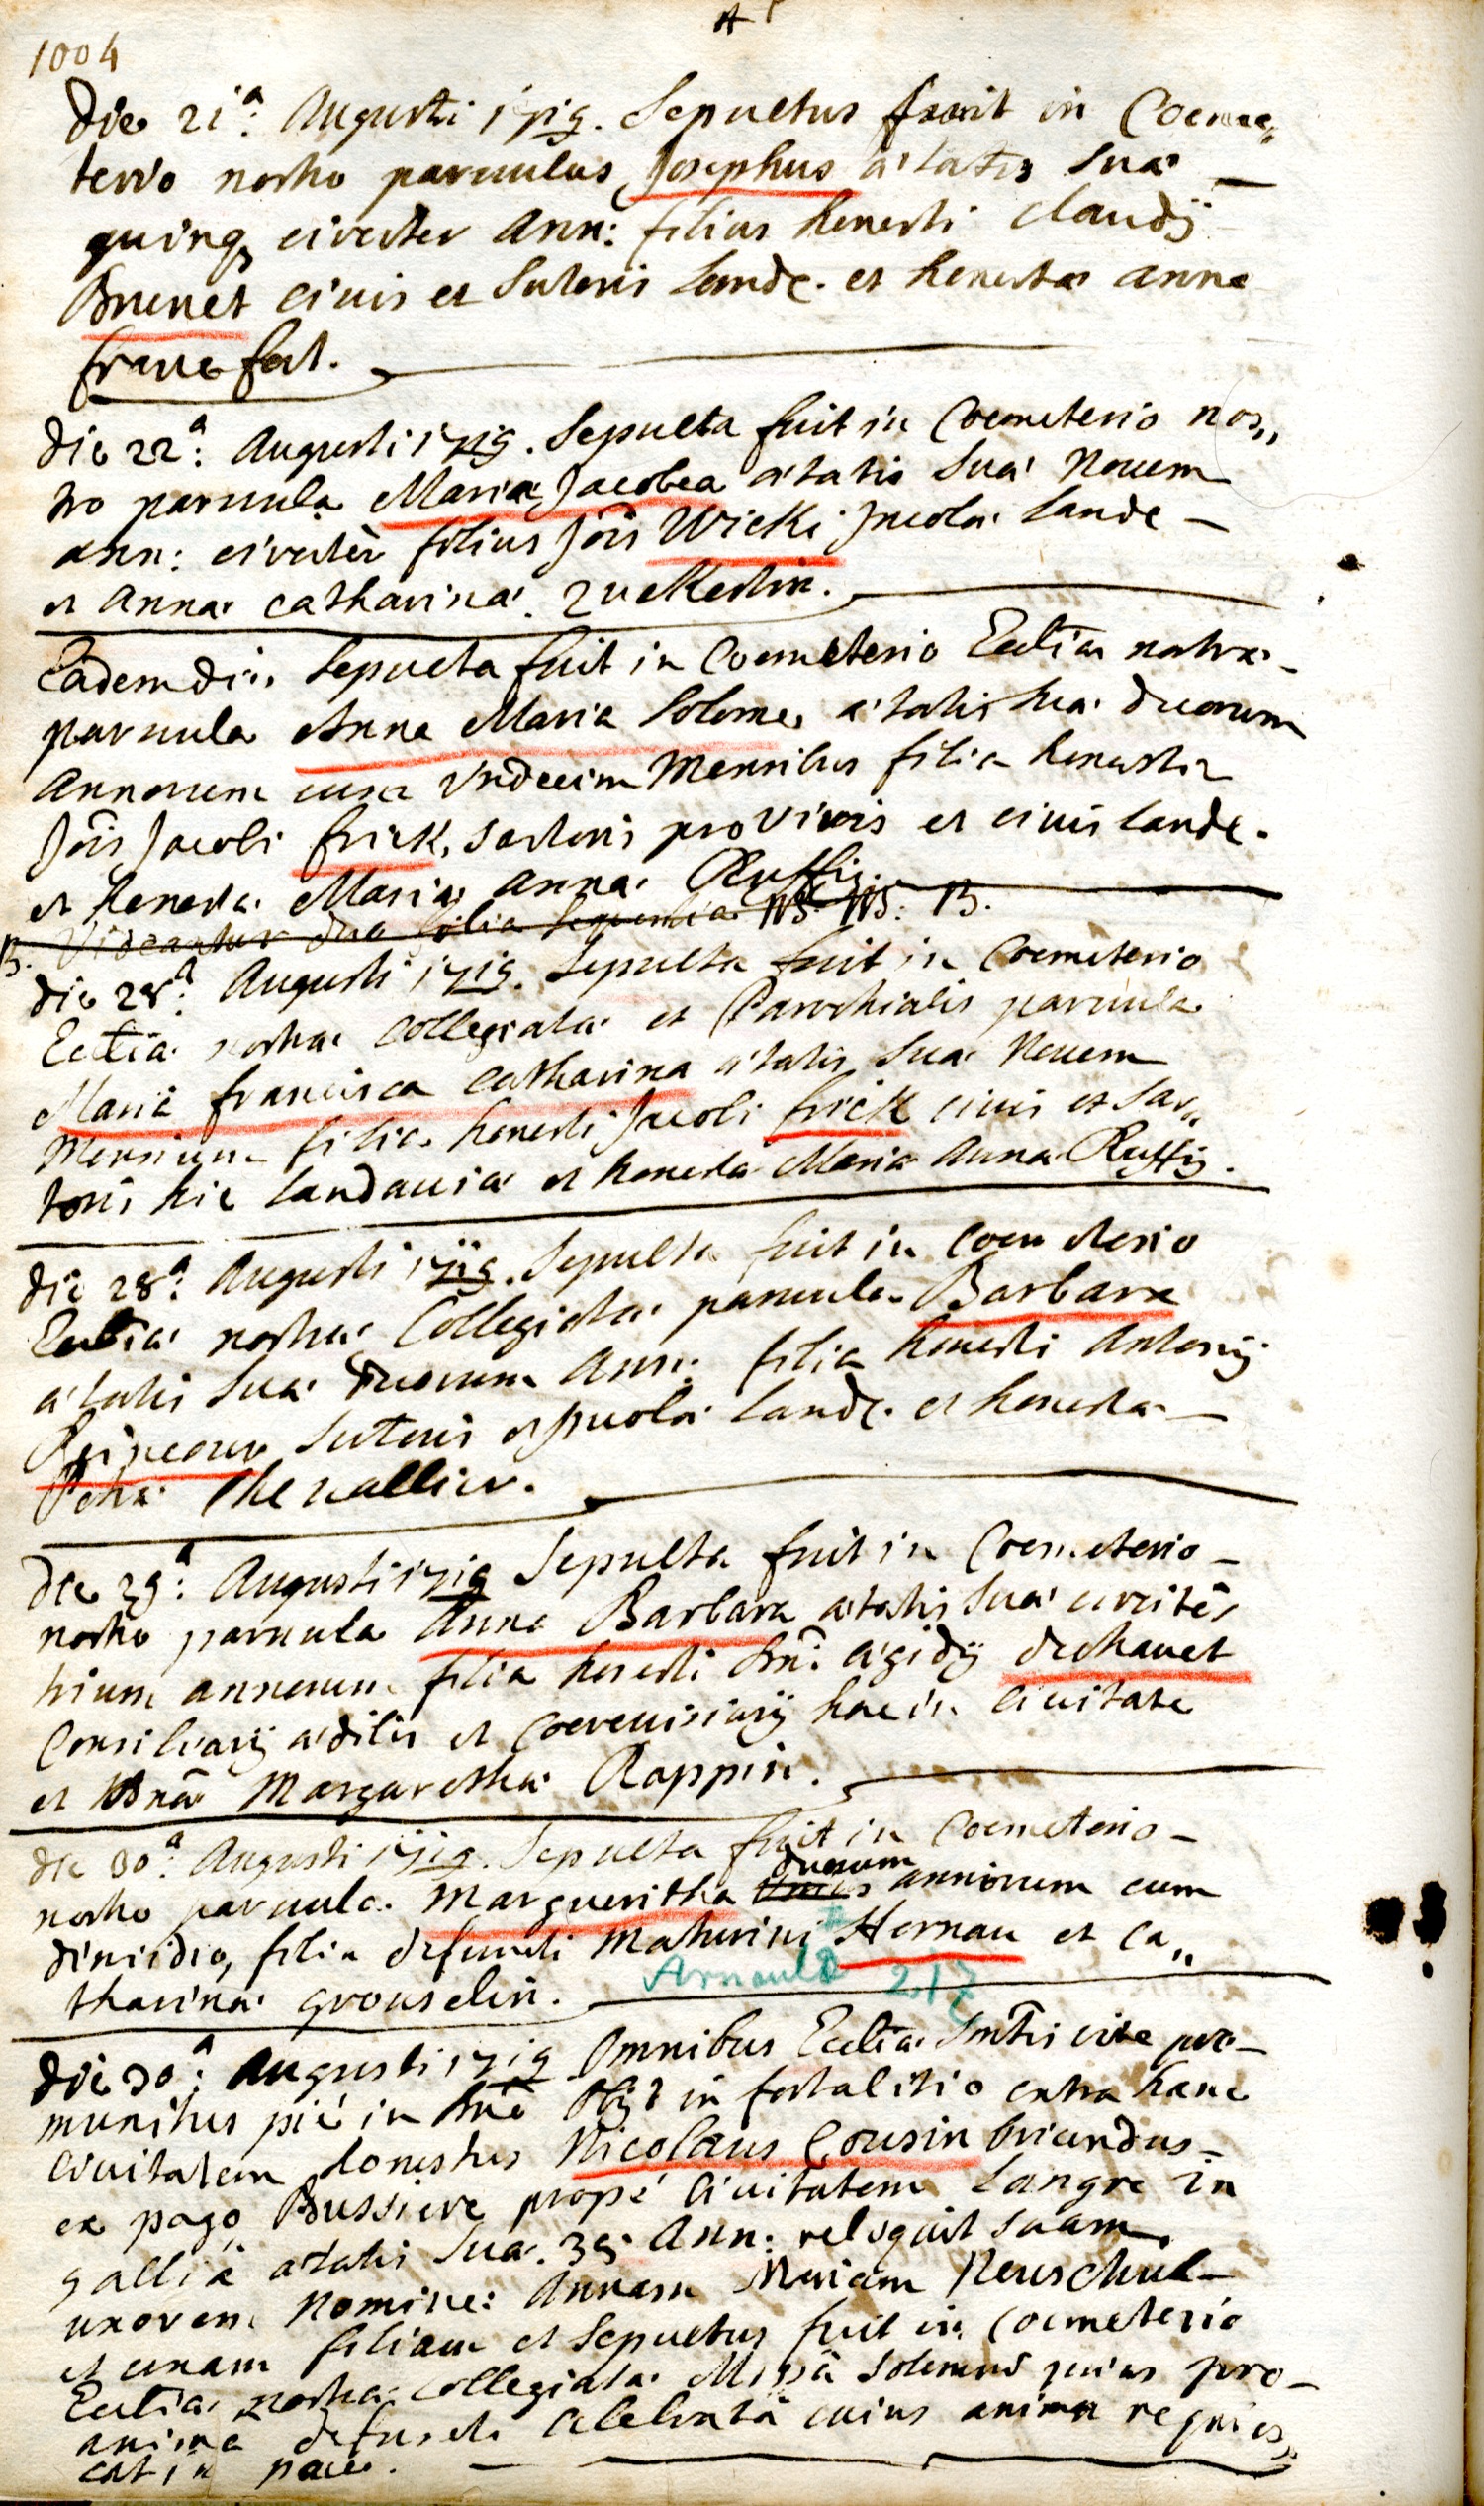 1004
Die 21.ª Augusti 1719. Sepultus fuit in Coeme„
terio nostro parvulus Josephus ætatis suæ —
quinq, circiter Ann: filius honesti Claudÿ
Brunet civis et sutoris Landc. et honestæ Annæ
die 22ª: Augusti 1719. Sepulta fuit in Coemeterio nos„
tro parvula Maria Jacobea ætatis suæ Novem
ann: circiter filius Jois Wicki Incolæ Lande —
et Annæ Catharinæ
Eadem die Sepulta fuit in Coemeterio Ecctiæ nostræ —
parvula Anna Maria Solome ætatis suæ duorum
Annorum cum Vndecim Mensibus filia honesti
Jois Jacobi frick, sartoris pro vivis et civis Landc.
et honestæ Mariæ Annæ Ruffin.
B. Videantur duo folia sequentia NB. NB: B.
die 28ª: Augusti 1719. Sepulta fuit in Coemeterio
Ecctiæ nostræ Collegiatæ et Parochialis parvula
Maria francisca Catharina ætatis suæ Novem
Mensium filia honesti Jacobi frick civis et Sar„
toris hic Landaviæ et honestæ Mariæ Annæ Ruffin.
die 28ª: Augusti 1719. Sepulta fuit in Coemeterio
Ecctiæ nostræ Collegiatæ parvula Barbara
ætatis suæ duorum Ann: filia honesti Antonÿ
sutoris et Incolæ Landc. et honestæ —
Petræ Chevallier.
die 29ª: Augusti 1719 Sepulta fuit in Coemeterio —
nostro parvula Anna Barbara ætatis suæ circiter
trium annorum filia honesti Dni: ægidÿ dechauet
Consiliarÿ ædilis et Coerevisiarÿ hac in civitate
et Dnæ Margarethæ Rappin.
die 30ª: Augusti 1719. Sepulta fuit in Coemeterio —
duorum
nostro parvula Margueritha annorum cum
dimidio, filia defuncti Maturini Hernau et Ca„
Arnauld 217
tharinæ grouselin.
die 30ª: Augusti 1719 Omnibus Ecctiæ Smtis rite præ —
munitus pie in Dno obÿt in fortalitio extra hanc
Civitatem honestus Nicolaus Cousin oriundus —
ex pago Bussiere prope Civitatem Langre in
gallia ætatis suæ 39 Ann: reliquit suam
uxorem Nomine: Annam Mariam Neuschul —
et unam filiam et Sepultus fuit in Coemeterio
Ecctiæ nostræ Collegiatæ Missa solemni prius pro —
anima defuncti Celebrata cuius anima requies„
cat in pace.